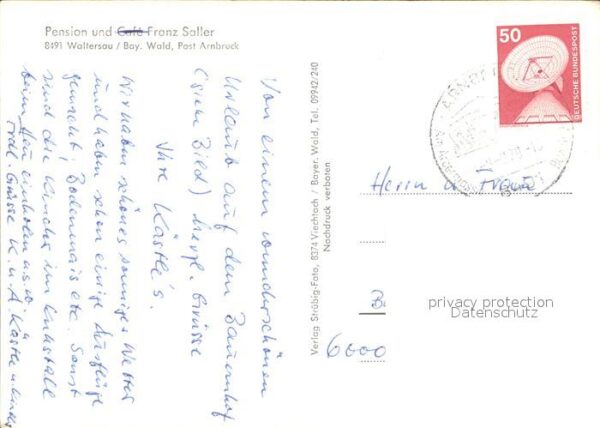 Pension und Café Franz Saller
8491 Waltersau / Bay. Wald, Post Arnbruck
Von einem wunderschönen
Urlaub auf dem Bauernhof
(siehe Bild) herzl. Grüsse
Ihre Kästle's.
Wir haben schönes sonniges Wetter
und haben schon einige Ausflüge
gemacht, Bodenmais etc. Sonst
sind die Kinder im Kuhstall
beim Heu einholen u.s.w.
Frdl. Grüsse K. u. A. Kästle u. Kinder
Verlag Strübig-Foto, 8374 Viechtach / Bayer. Wald, Tel. 09942/240
Nachdruck verboten
50
DEUTSCHE BUNDESPOST
Herrn u. Frau
B
6000
privacy protection
Datenschutz